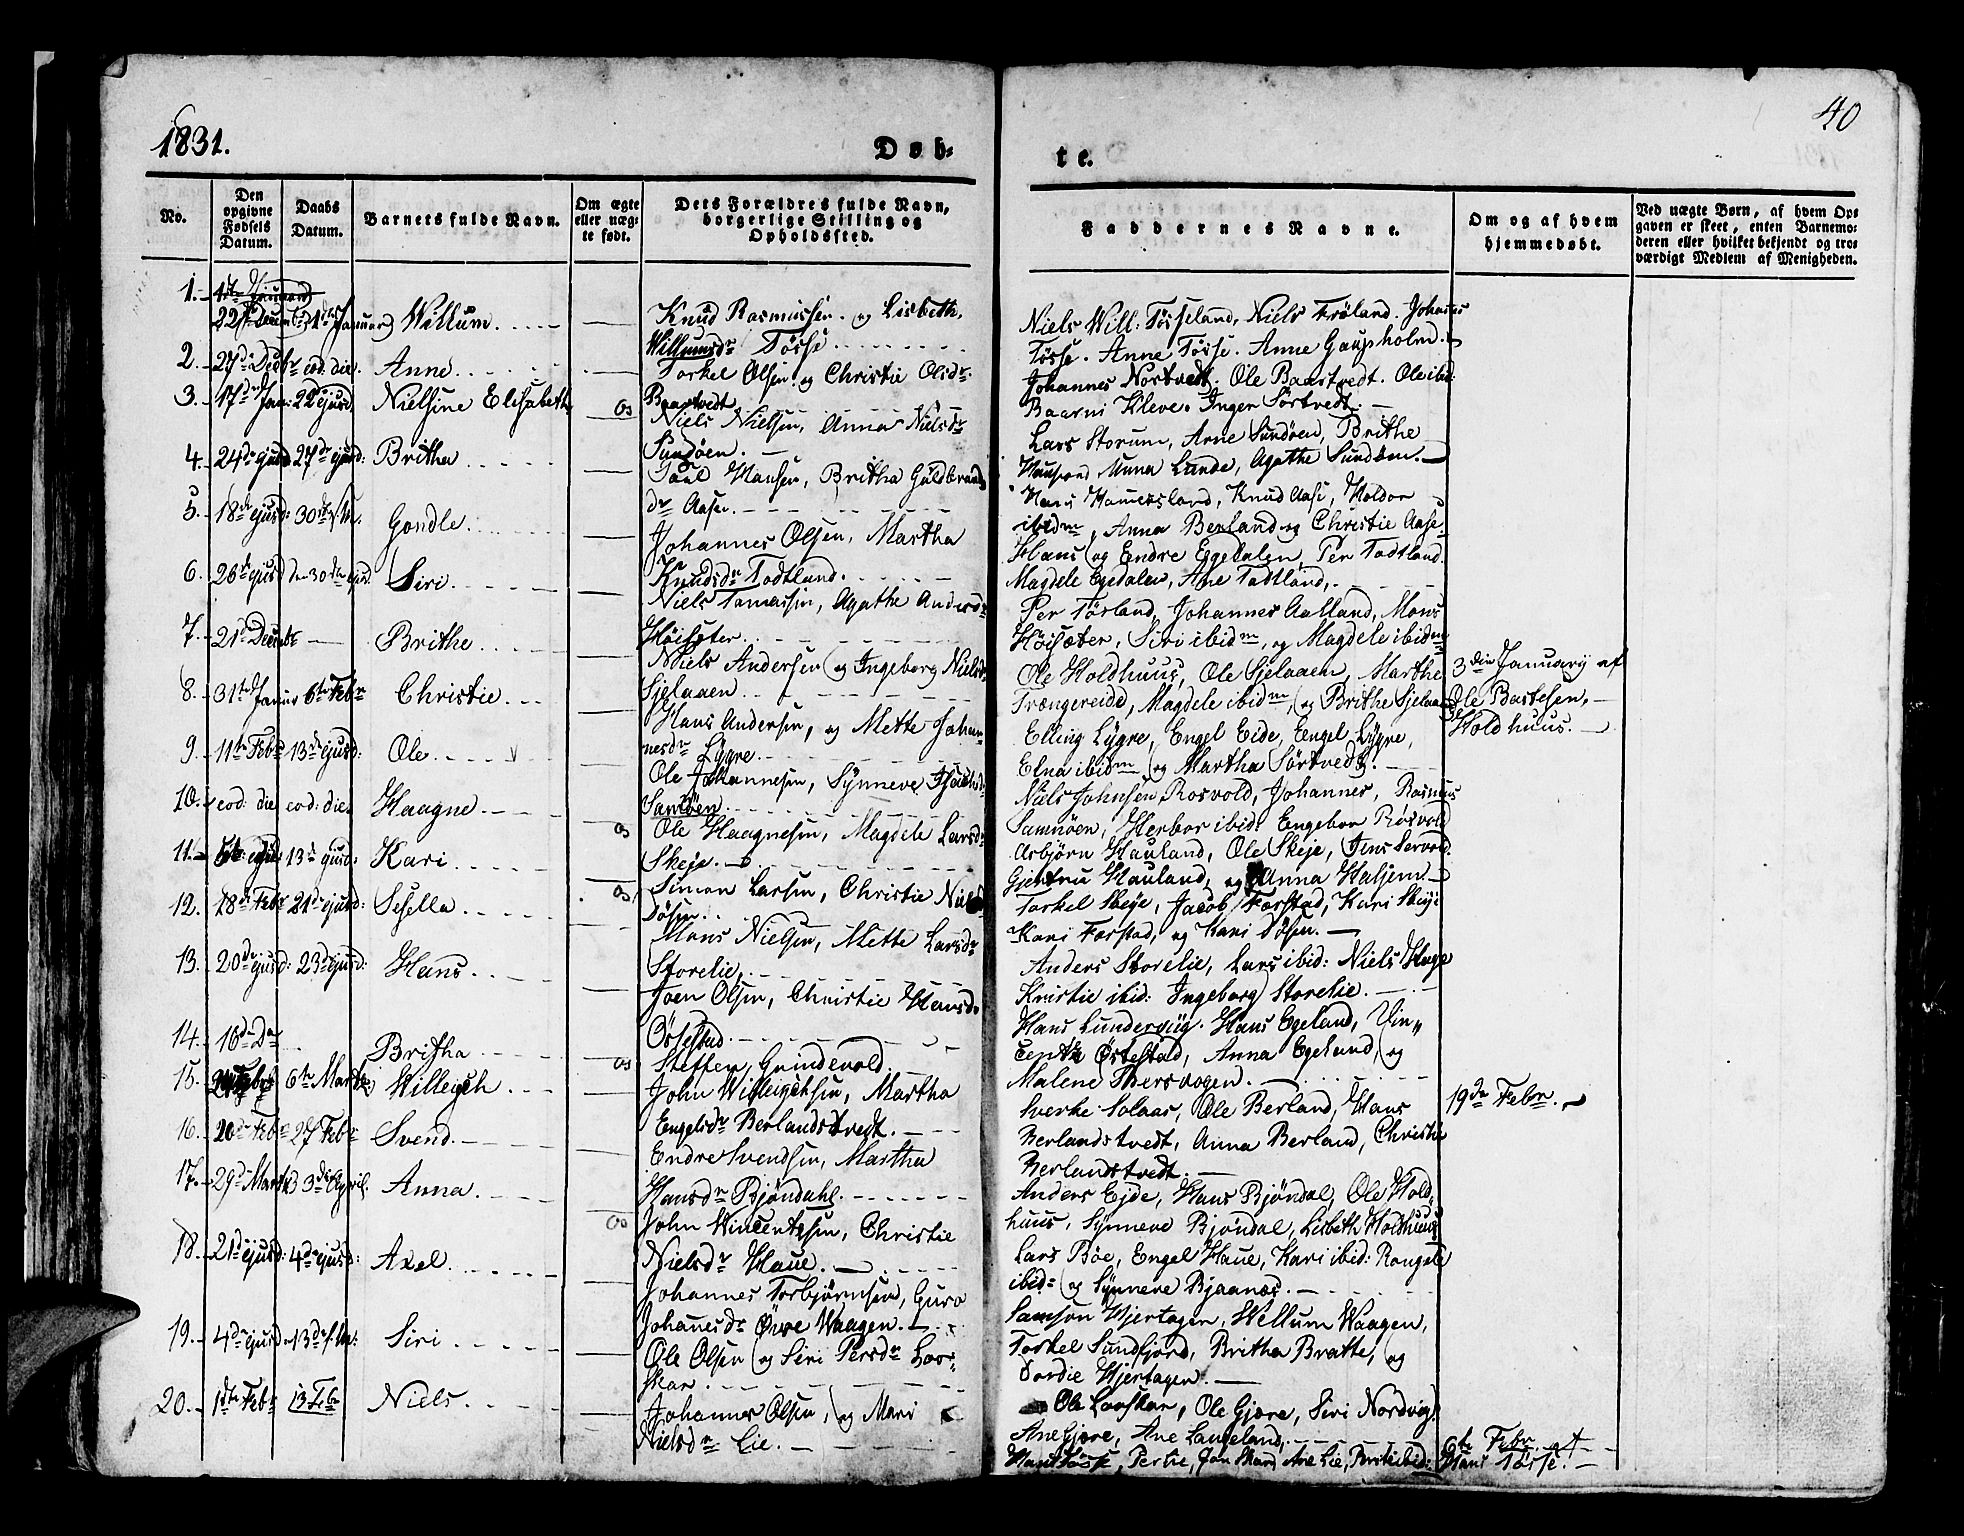 1831.
Døb-
te.
40
No.
Den opgivne Fødsels Datum.
Daabs Datum.
Barnets fulde Navn.
Om ægte eller uægte født.
Dets Forældres fulde Navn, borgerlige Stilling og Opholdssted.
Faddernes Navne.
Om og af hvem hjemmedøbt.
Ved uægte Børn, af hvem Opgaven er skeet, enten Barnemoderen eller hvilket bekjendt og troværdigt Medlem af Menigheden.
1. 22de Decembr 1ste Januar Willum.
Knud Rasmussen og Lisbeth
Willumsdr Tøsse
Niels Will: Tøsseland, Niels Frøland. Johannes
Tøsse. Anne Tøsse. Anne Gaupholm.
2. 27de Decbr eod: die. Anne.
Torkel Olsen og Christie Olsdr
Baartvedt
Johannes Nortvedt. Ole Baartvedt. Ole ibid:
Baarni Kleve. Inger Sørtvedt.
3. 17de Jan: 22 ejusd. Nielsine Elisabeth
Niels Nielsen, Anna Nielsdr
Sundøen.
Lars Storum, Arne Sundøen, Brithe
Anna Lunde, Agathe Sundøen.
4. 24de ejusd 27de ejusd: Britha
Paul Hansen, Britha Guldbrands
dr Aase.
Hans Hamersland, Knud Aase, Holdor
ibidm, Anna Berland og Christie Aase.
5. 18de ejusd: 30de Gondle.
Johannes Olsen, Martha
Knudsdr Todtland.
Hans og Endre Eggedalen, Per Todtland.
Magdele Egedalen, Ane Todtland.
6. 26de ejusd 30de ejusd. Siri.
Niels Tomassen, Agathe Andersdr
Høisæter.
Per Tørland, Johannes Aalland, Mons
Høisæter, Siri ibidm, og Magdele ibidm
7. 21de Decembr Brithe
Niels Andersen og Ingeborg Nielsdr
Sjelaaen
Ole Holdhuus, Ole Sjelaaen, Marthe
Trængereide, Magdele ibidm, og Brithe Sjelaaen
3die January af
Ole Bastesen,
Holdhuus.
8. 31te Januar 6te Febr Christie.
Hans Andersen, og Mette Johan-
nesdr Lygre.
Elling Lygre, Engel Eide, Engel Lygre,
Elna ibidm og Martha Sørtvedt.
9. 11te Febr 13de ejusd: Ole.
Ole Johannesen, Synneve
Samnøen.
Niels Johnsen Rosvold, Johannes, Rasmus
Samnøen, Herbor ibid: Engebor Røsvold
10. eod: die eod: die. Haagne
Ole Haagnesen, Magdele Larsdr
Skeje.
Asbjørn Hauland, Ole Skeje, Jens Servold.
Gjertru Hauland, og Anna Haljem
11. 13de ejusd: Kari
Simon Larsen, Christie
Døsen.
Torkel Skeje, Jacob Forstad, Kari Skeje
Kari Forstad, og Kari Døsen.
12. 18de Febr 21de ejusd: Sesella
Mons Nielsen, Mette Larsdr
Storelie
Anders Storelie, Lars ibid: Niels Hage
Kristie ibid: Ingeborg Storelie.
13. 20de ejusd: 23de ejusd: Hans.
Joen Olsen, Christie Hansd.
Østestad.
Hans Lundervig. Hans Egeland, Vin-
centz Østestad, Anna Egeland, og
Malene
14. 16de Britha
Steffen Grindevold
15. 6te Marts Willeich
John Willeichsen, Martha
Engelsdr Berlandstvedt.
Sverke Solaas, Ole Berland, Hans
Berlandstvedt, Anna Berland, Christie
Berlandstvedt.
19de Febr.
16. 20de Febr 27 Febr Svend.
Endre Svendsen, Martha
Hansdr Bjöndahl.
Anders Ejde, Hans Bjöndal, Ole Hold-
huus, Synneve Bjöndal, Lisbeth Holdhuus
17. 29de Marts 3die April. Anna.
John Wincentzsen, Christie
Nielsdr Haue.
Lars Bøe, Engel Haue, Kari ibid: Rangele
ibid: og Synneve Bjaanæs.
18. 21de ejusd: 4de ejusd: Axel.
Johannes Torbjørnsen, Guro
Johannesdr Øvre Waagen.
Samson Hjertager, Wellum Waagen,
Torkel Sundfjord, Britha Bratte, og
Dordie Hjertager.
19. 4de ejusd 13de Siri
Ole Olsen og Siri Persdr Loo-
skar
Ole Looskar, Ole Gjøre, Siri Nordvig.
Ane Gjøre, Ane Langeland,
20. 1ste Febr 13 Feb Niels.
Johannes Olsen, og Mari
Nielsdr Lie.
Hans Tøsse, Per Lie, Ane Lie, Brite ibid:
6te Febr. af
Hans Tøsse.